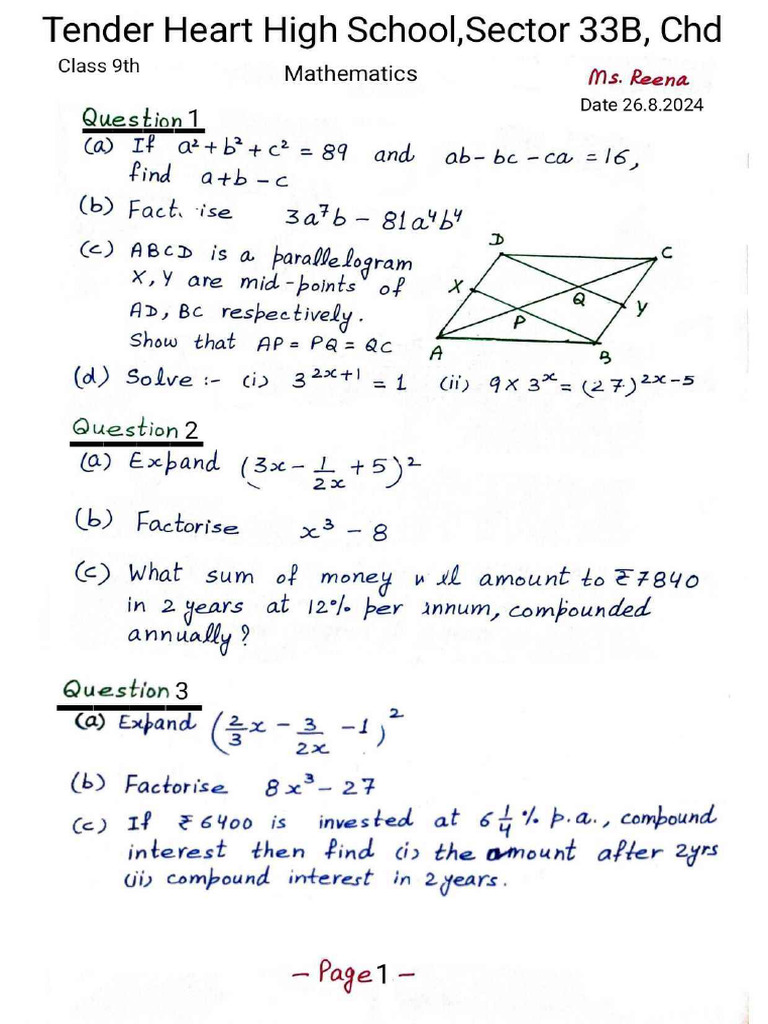 Tender Heart High School,Sector 33B, Chd
Class 9th
Mathematics
Ms. Reena
Date 26.8.2024
Question 1
(a) If a²+b²+c² = 89 and ab-bc-ca =16,
find a+b-c
(b) 3a⁷b - 81a⁴b⁴
(c) ABCD is a parallelogram
X, Y are mid-points of
AD, BC respectively.
Show that AP = PQ = QC
D
C
X
Q
Y
P
A
B
(d) Solve :- (i) 3^(2x+1) = 1 (ii) 9 x 3^x = (27)^(2x-5)
Question 2
(a) Expand (3x - 1/2x + 5)²
(b) Factorise x³ - 8
(c) What sum of money amount to ₹7840
in 2 years at 12% per annum, compounded
annually?
Question 3
(a) Expand (2/3 x - 3/2x - 1)²
(b) Factorise 8x³ - 27
(c) If ₹6400 is invested at 6 1/4 % p.a., compound
interest then find (i) the amount after 2yrs
(ii) compound interest in 2 years.
- Page 1 -